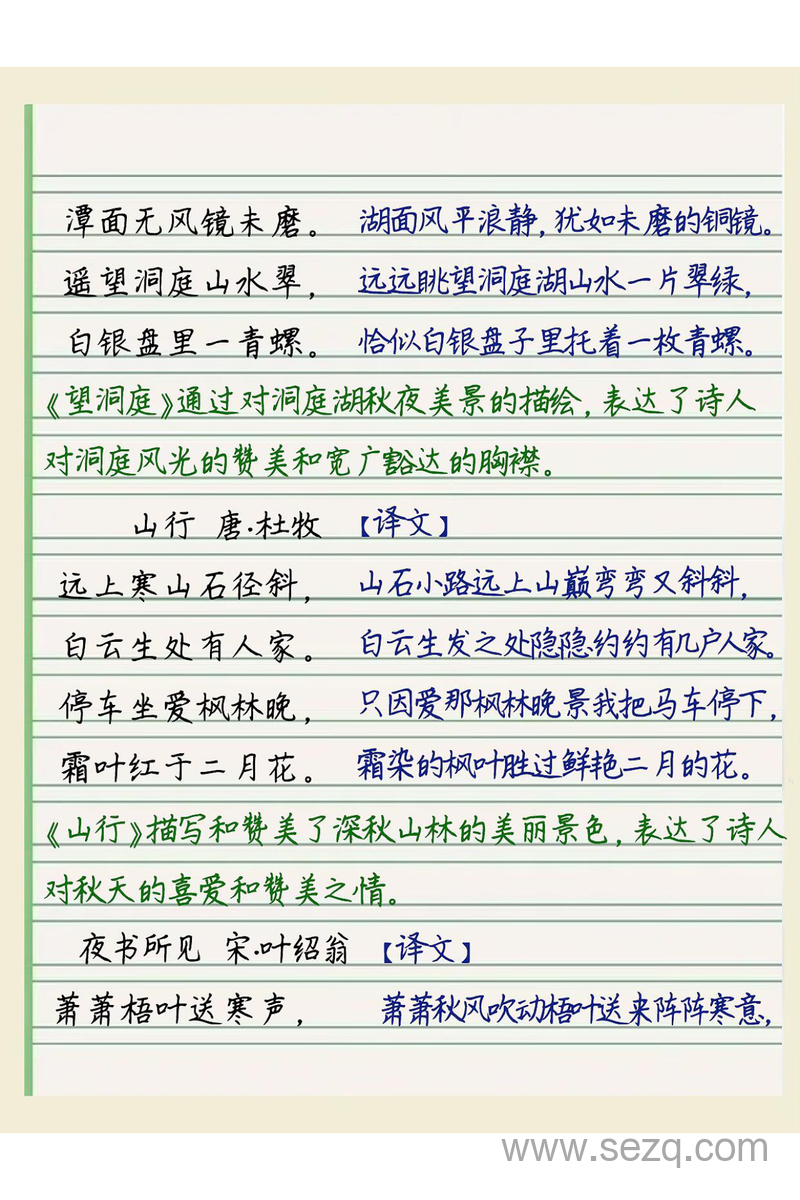 潭面无风镜未磨。 湖面风平浪静,犹如未磨的铜镜。
遥望洞庭山水翠, 远远眺望洞庭湖山水一片翠绿,
白银盘里一青螺。 恰似白银盘子里托着一枚青螺。
《望洞庭》通过对洞庭湖秋夜美景的描绘,表达了诗人
对洞庭风光的赞美和宽广豁达的胸襟。
山行 唐·杜牧 【译文】
远上寒山石径斜, 山石小路远上山巅弯弯又斜斜,
白云生处有人家。 白云生发之处隐隐约约有几户人家。
停车坐爱枫林晚, 只因爱那枫林晚景我把马车停下,
霜叶红于二月花。 霜染的枫叶胜过鲜艳二月的花。
《山行》描写和赞美了深秋山林的美丽景色,表达了诗人
对秋天的喜爱和赞美之情。
夜书所见 宋·叶绍翁 【译文】
萧萧梧叶送寒声, 萧萧秋风吹动梧叶送来阵阵寒意,
www.sezq.com